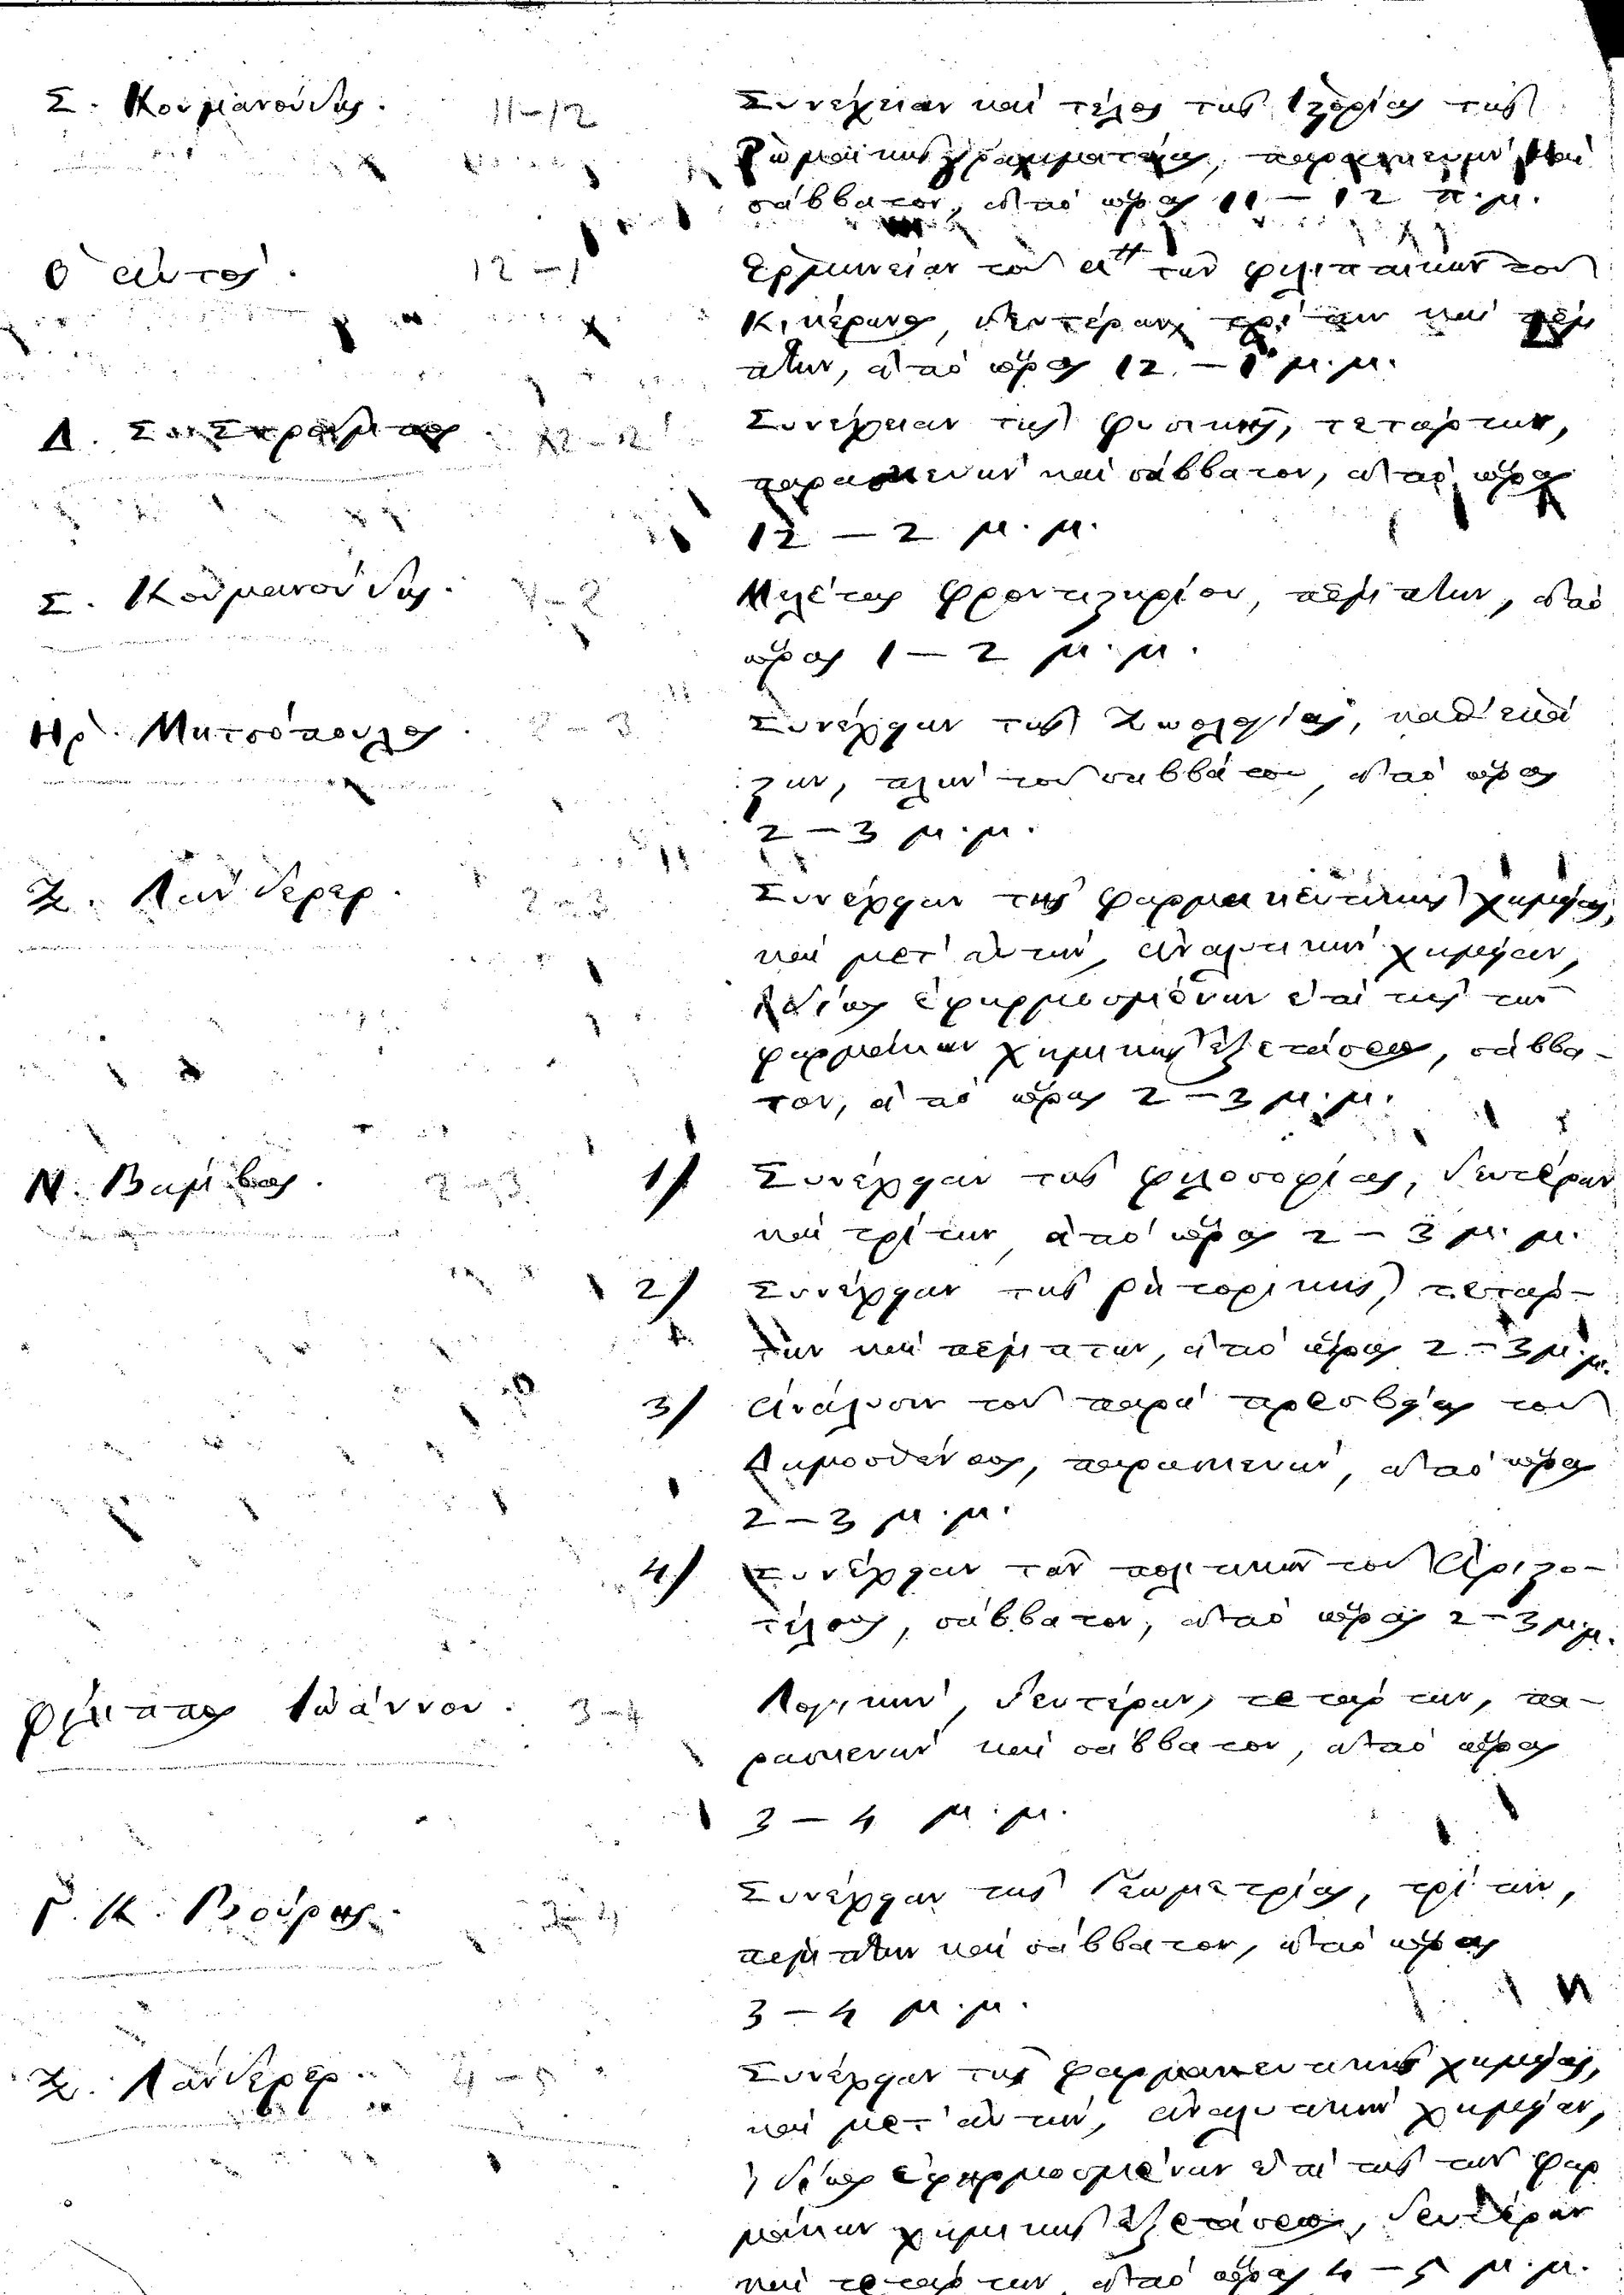 Σ. Κουμανούδης. 11-12 Συνέχειαν καὶ τέλος τῆς ἱστορίας τῆς
Ῥωμαϊκῆς γραμματείας, παρασκευὴν καὶ
σάββατον, ἀπὸ ὥρας 11 - 12 π.μ.
Ὁ αὐτός. 12-1 Ἑρμηνείαν τοῦ αʹʹ τῶν φιλιππικῶν τοῦ
Κικέρωνος, δευτέραν, τρίτην καὶ πέμ
πτην, ἀπὸ ὥρας 12 - 1 μ.μ.
Δ. Σ. Στρούμπος 12-2 Συνέχειαν τῆς φυσικῆς, τετάρτην,
παρασκευὴν καὶ σάββατον, ἀπὸ ὥρας
12 - 2 μ.μ.
Σ. Κουμανούδης. 1-2 Μελέτας φροντιστηρίου, πέμπτην, ἀπὸ
ὥρας 1 - 2 μ.μ.
Ἡρ. Μητσόπουλος. 2-3 Συνέχειαν τῆς Ζωολογίας, καθ' ἑκά
στην, πλὴν τοῦ σαββάτου, ἀπὸ ὥρας
2 - 3 μ.μ.
Ξ. Λάνδερερ. 2-3 Συνέχειαν τῆς φαρμακευτικῆς χημείας,
καὶ μετ' αὐτήν, ἀναλυτικὴν χημείαν,
ἰδίως ἐφηρμοσμένην ἐπὶ τῆς τῶν
φαρμάκων χημικῆς ἐξετάσεως, σάββα-
τον, ἀπὸ ὥρας 2 - 3 μ.μ.
Ν. Βάμβας. 2-3 1/ Συνέχειαν τῆς φιλοσοφίας, δευτέραν
καὶ τρίτην, ἀπὸ ὥρας 2 - 3 μ.μ.
2/ Συνέχειαν τῆς ῥητορικῆς, τετάρ-
την καὶ πέμπτην, ἀπὸ ὥρας 2 - 3 μ.μ.
3/ Ἀνάλυσιν τοῦ παρα πρεσβείας τοῦ
Δημοσθένους, παρασκευὴν, ἀπὸ ὥρας
2 - 3 μ.μ.
4/ Συνέχειαν τῶν πολιτικῶν τοῦ Ἀριστο-
τέλους, σάββατον, ἀπὸ ὥρας 2 - 3 μ.μ.
Φίλιππος Ἰωάννου. 3-4 Λογικὴν, δευτέραν, τετάρτην, πα-
ρασκευὴν καὶ σάββατον, ἀπὸ ὥρας
3 - 4 μ.μ.
Γ. Κ. Βούρης. 3-4 Συνέχειαν τῆς Γεωμετρίας, τρίτην,
πέμπτην καὶ σάββατον, ἀπὸ ὥρας
3 - 4 μ.μ.
Ξ. Λάνδερερ. 4-5 Συνέχειαν τῆς φαρμακευτικῆς χημείας,
καὶ μετ' αὐτὴν, ἀναλυτικὴν χημείαν,
ἰδίως ἐφηρμοσμένην ἐπὶ τῆς τῶν φαρ
μάκων χημικῆς ἐξετάσεως, δευτέραν
καὶ τετάρτην, ἀπὸ ὥρας 4 - 5 μ.μ.